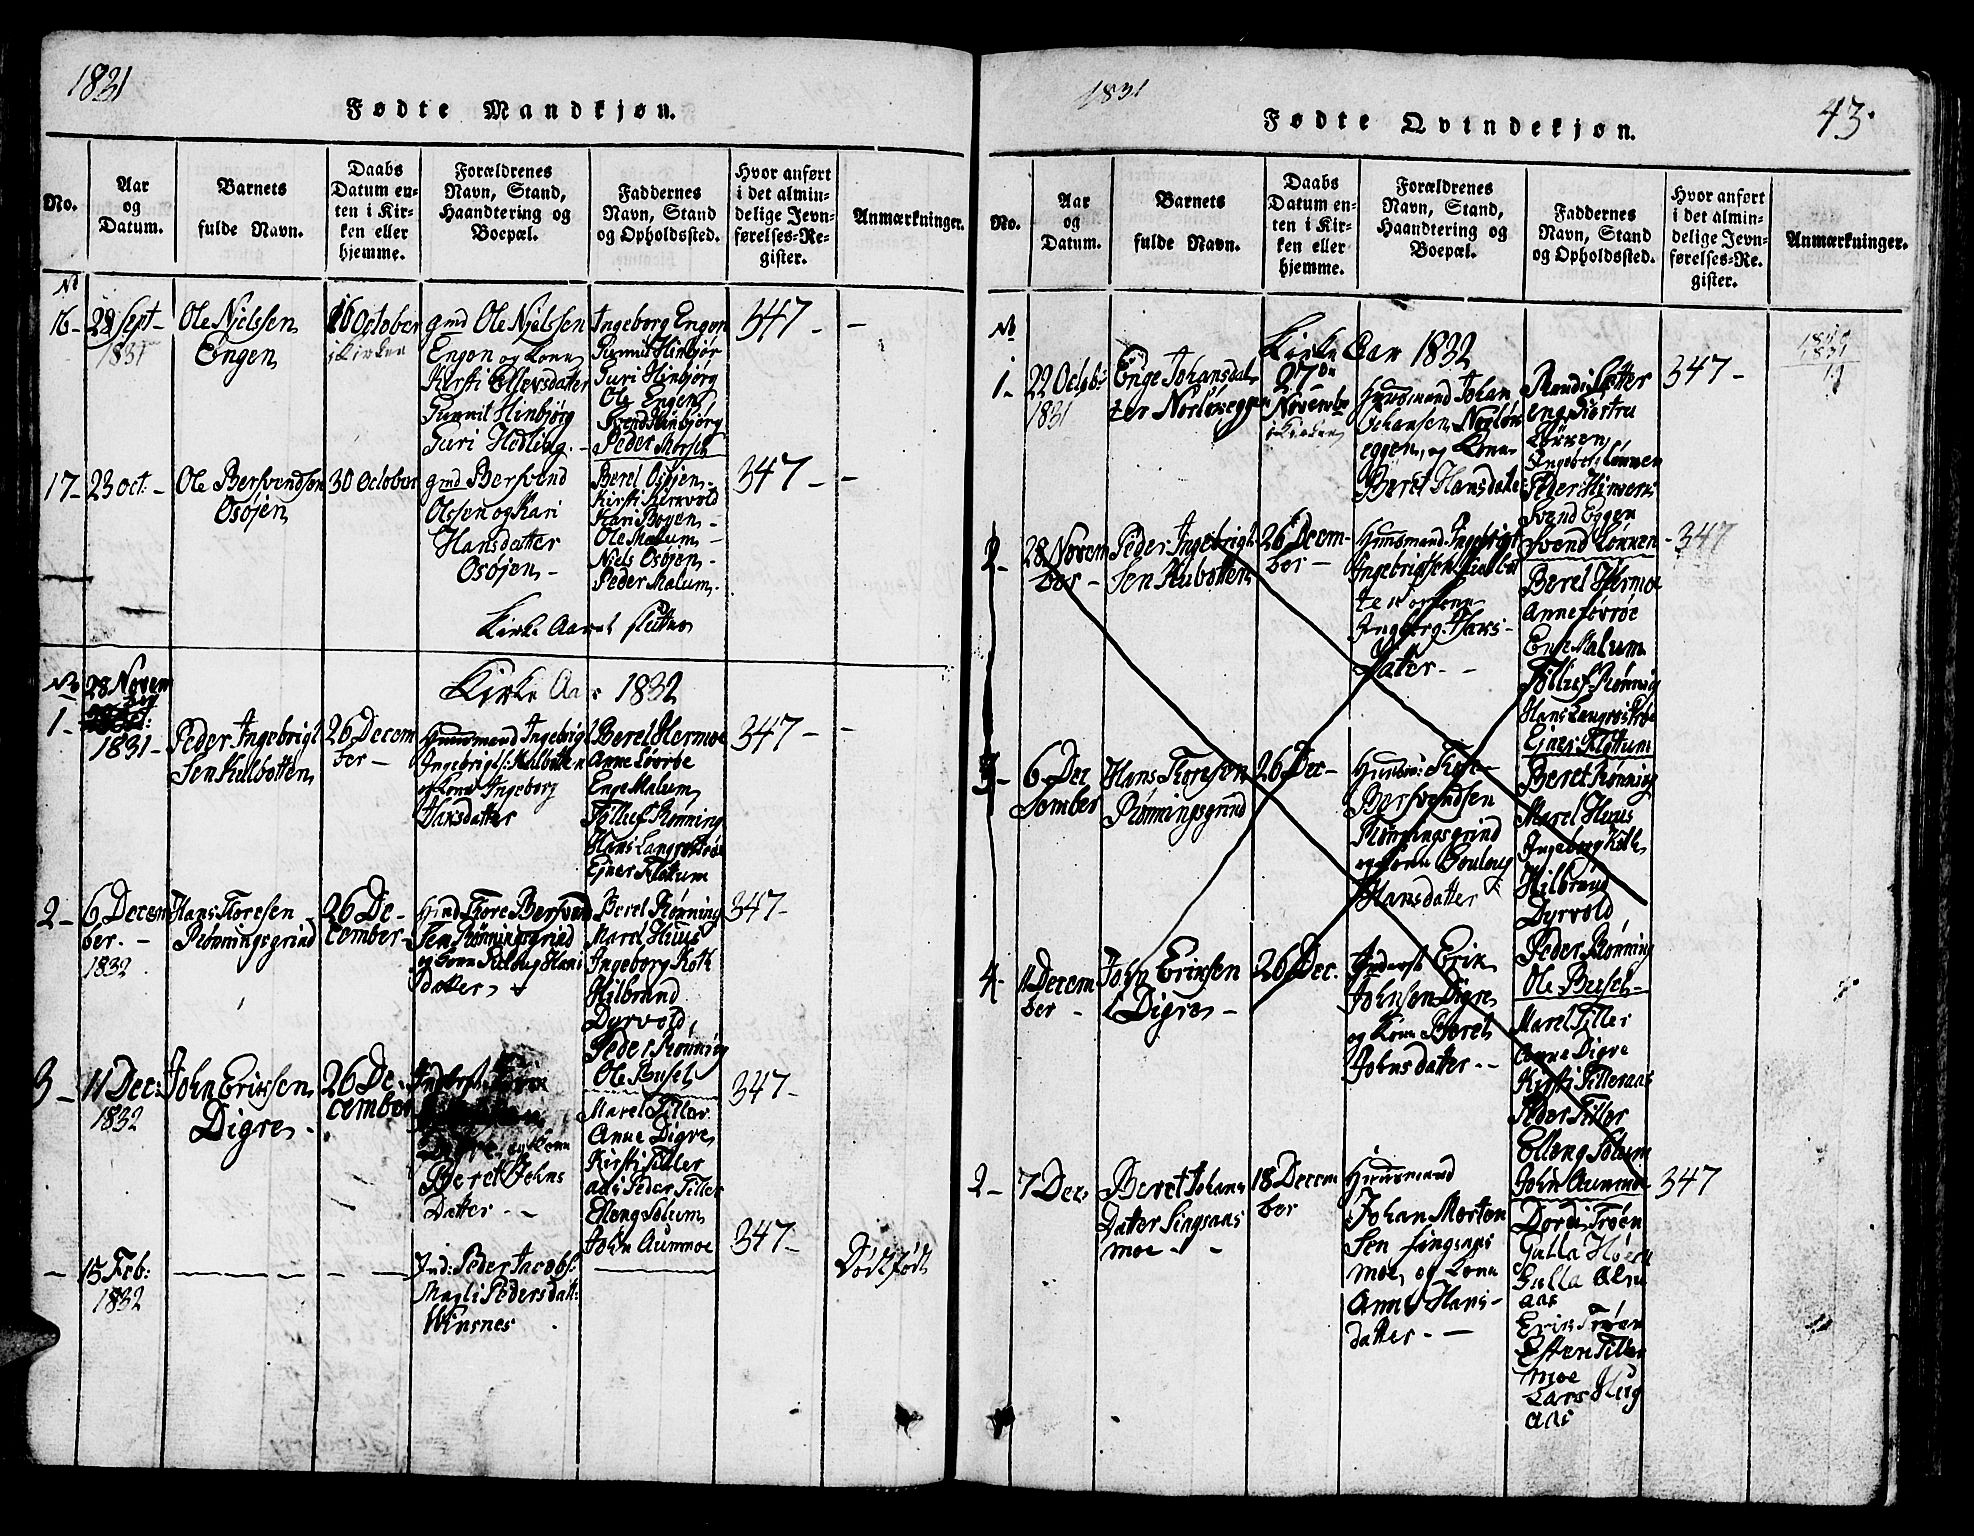 1831
Fødte Mandkjøn.
No.
Aar
og
Datum.
Barnets
fulde Navn.
Daabs
Datum en-
ten i Kir-
ken eller
hjemme.
Forældrenes
Navn, Stand,
Haandtering og
Boepæl.
Faddernes
Navn, Stand
og Opholdssted.
Hvor anført
i det almin-
delige Jevn-
førelses-Re-
gister.
Anmærkninger.
No
16-
29 Sept-
1831
Ole Njelssen
Engen
16 October
i Kirken
gmd Ole Njelssen
Engen og Kone
Kirsti Ellevsdatter
Gunnil Hinbjørg
Guri Hedling.-
Ingeborg Engen
Gunnil Hinbjør
Guri Hinbjørg
Ole Engen
Svend Hinbjørg
Peder Morset
347-
-
17-
23 oct:-
Ole Bersvendsen
Osøjen
30 October
gmd Bersvend
Olssen og Kari
Hansdatter
Osøjen-
Beret Osøjen-
Kirsti
Kari Bogen-
Ole Malum-
Niels Osøjen-
Peder Malum-
347-
-
Kirke Aaret sluttes
Kirke Aar 1832
No
1-
28 Novem
ber
1831-
Peder Ingebrigt
Sen Kulbotten
26 Decem
ber-
Huusmand Ingebrigt
Ingebrigts: Kulbotten
og Kone Ingeborg
Hansdatter
Beret Hermoe
Anne Løvrøe
Enge Malum
Tølluf Rønning
Hans Langrøstrøe
Ejner Flotum
347-
-
2-
6 Decem
ber.-
1832
Hans Toresen
Rønningsgrind
26 De-
cember-
Hmd Tore Bersvend
Sen Rønningsgrind
og Kone Hans
datter
Beret Rønning
Marel Huus
Ingeborg Koth
Hilbrand
Dyrvold
Peder Rønning
Ole Busch
347-
3-
11 Dec:
1832
John Eriksen
Digre-
26 De-
cember
Inderst Erik
Digre og Kone
Beret Johns
Datter--
Marel Tiller
Anne Digre
Kirsti Tiller
aas Peder Tiller
Elleng Solum
John Aunmoe
347-
-
15 Feb:
1832
Ind: Peder Jacobs:
Magli Pedersdatt:
Winsnes
347-
Dødfødt
1831
Fødte Qvindekjøn.
43.
No.
Aar
og
Datum.
Barnets
fulde Navn.
Daabs
Datum en-
ten i Kir-
ken eller
hjemme.
Forældrenes
Navn, Stand,
Haandtering og
Boepæl.
Faddernes
Navn, Stand
og Opholdssted.
Hvor anført
i det almin-
delige Jevn-
førelses-Re-
gister.
Anmærkninger.
No
Kirke Aar 1832
1-
22 Octob:
1831
Enge Johansdat
ter Norløseggen
27de
Novembr
i Kirken
Huusmand Johan
Johansen Norløs
eggen, og Kone
Beret Hansdatter
Randi Sætter
eng
Løkken
Ingeborg Løkken
Peder
Svend Eggen
Svend Løkken-
347-
1831
2-
28 Novem
ber-
Peder Ingebrigt
Sen Kulbotten
26 Decem-
ber-
Huusmand Ingebrigt
Ingebrigtsen Kulbot
te og Kone
Ingeborg Hans-
Dater--
Beret Hermoe
Anne Løvrøe
Enge Malum
Tølluf Rønnig
Hans Langrøstrøe
Ejner Flotum
347
3-
6 De
Sember
Hans Toresen
Rønningsgrind
26 Dec-
Huusm: Tore
Bersvendsen
Rønningsgrind
og Kone
Hansdatter
Beret Rønning
Marel Huus
Ingeborg Koth
Hilbrand
Dyrvold
Peder Rønning
Ole Busch-
4-
11 Decem
ber-
John Eriksen
Digre-
26 Dec.
Inderst Erik
Johnsen Digre
og Kone Beret
Johnsdatter--
Marel Tiller
Anne Digre
Kirsti Tilleraas
Peder Tiller
Elleng Solum
John Aunmoe
2-
7 Dec,
Beret Johans
Datter Singsaas
moe--
18 Decem
ber
Huusmand
Johan Morten
Sen Singsaas
moe, og Kone
Anne Hans-
datter.-
Dordi Trøen
Gulla
Gulla
aas
Erik Trøen
Esten Tiller
moe
Lars Hug
aas
347